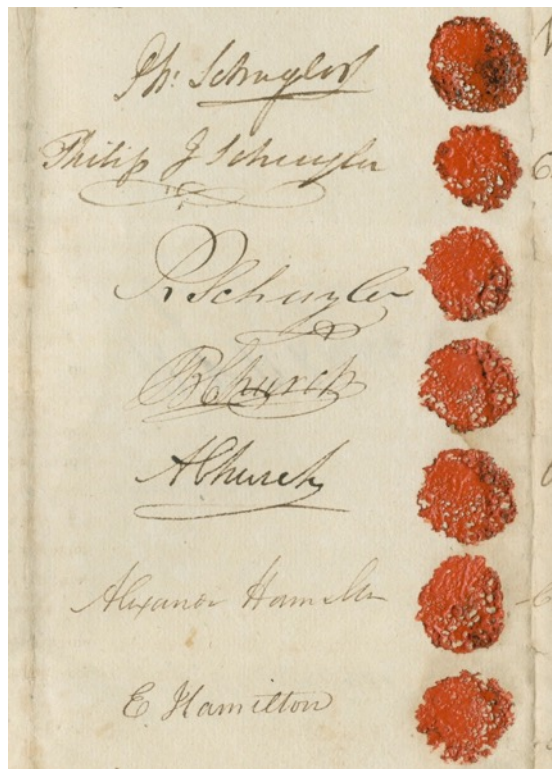 Ph: Schuyler
Philip J Schuyler
R Schuyler
JB Church
A Church
Alexander Hamilton
E. Hamilton